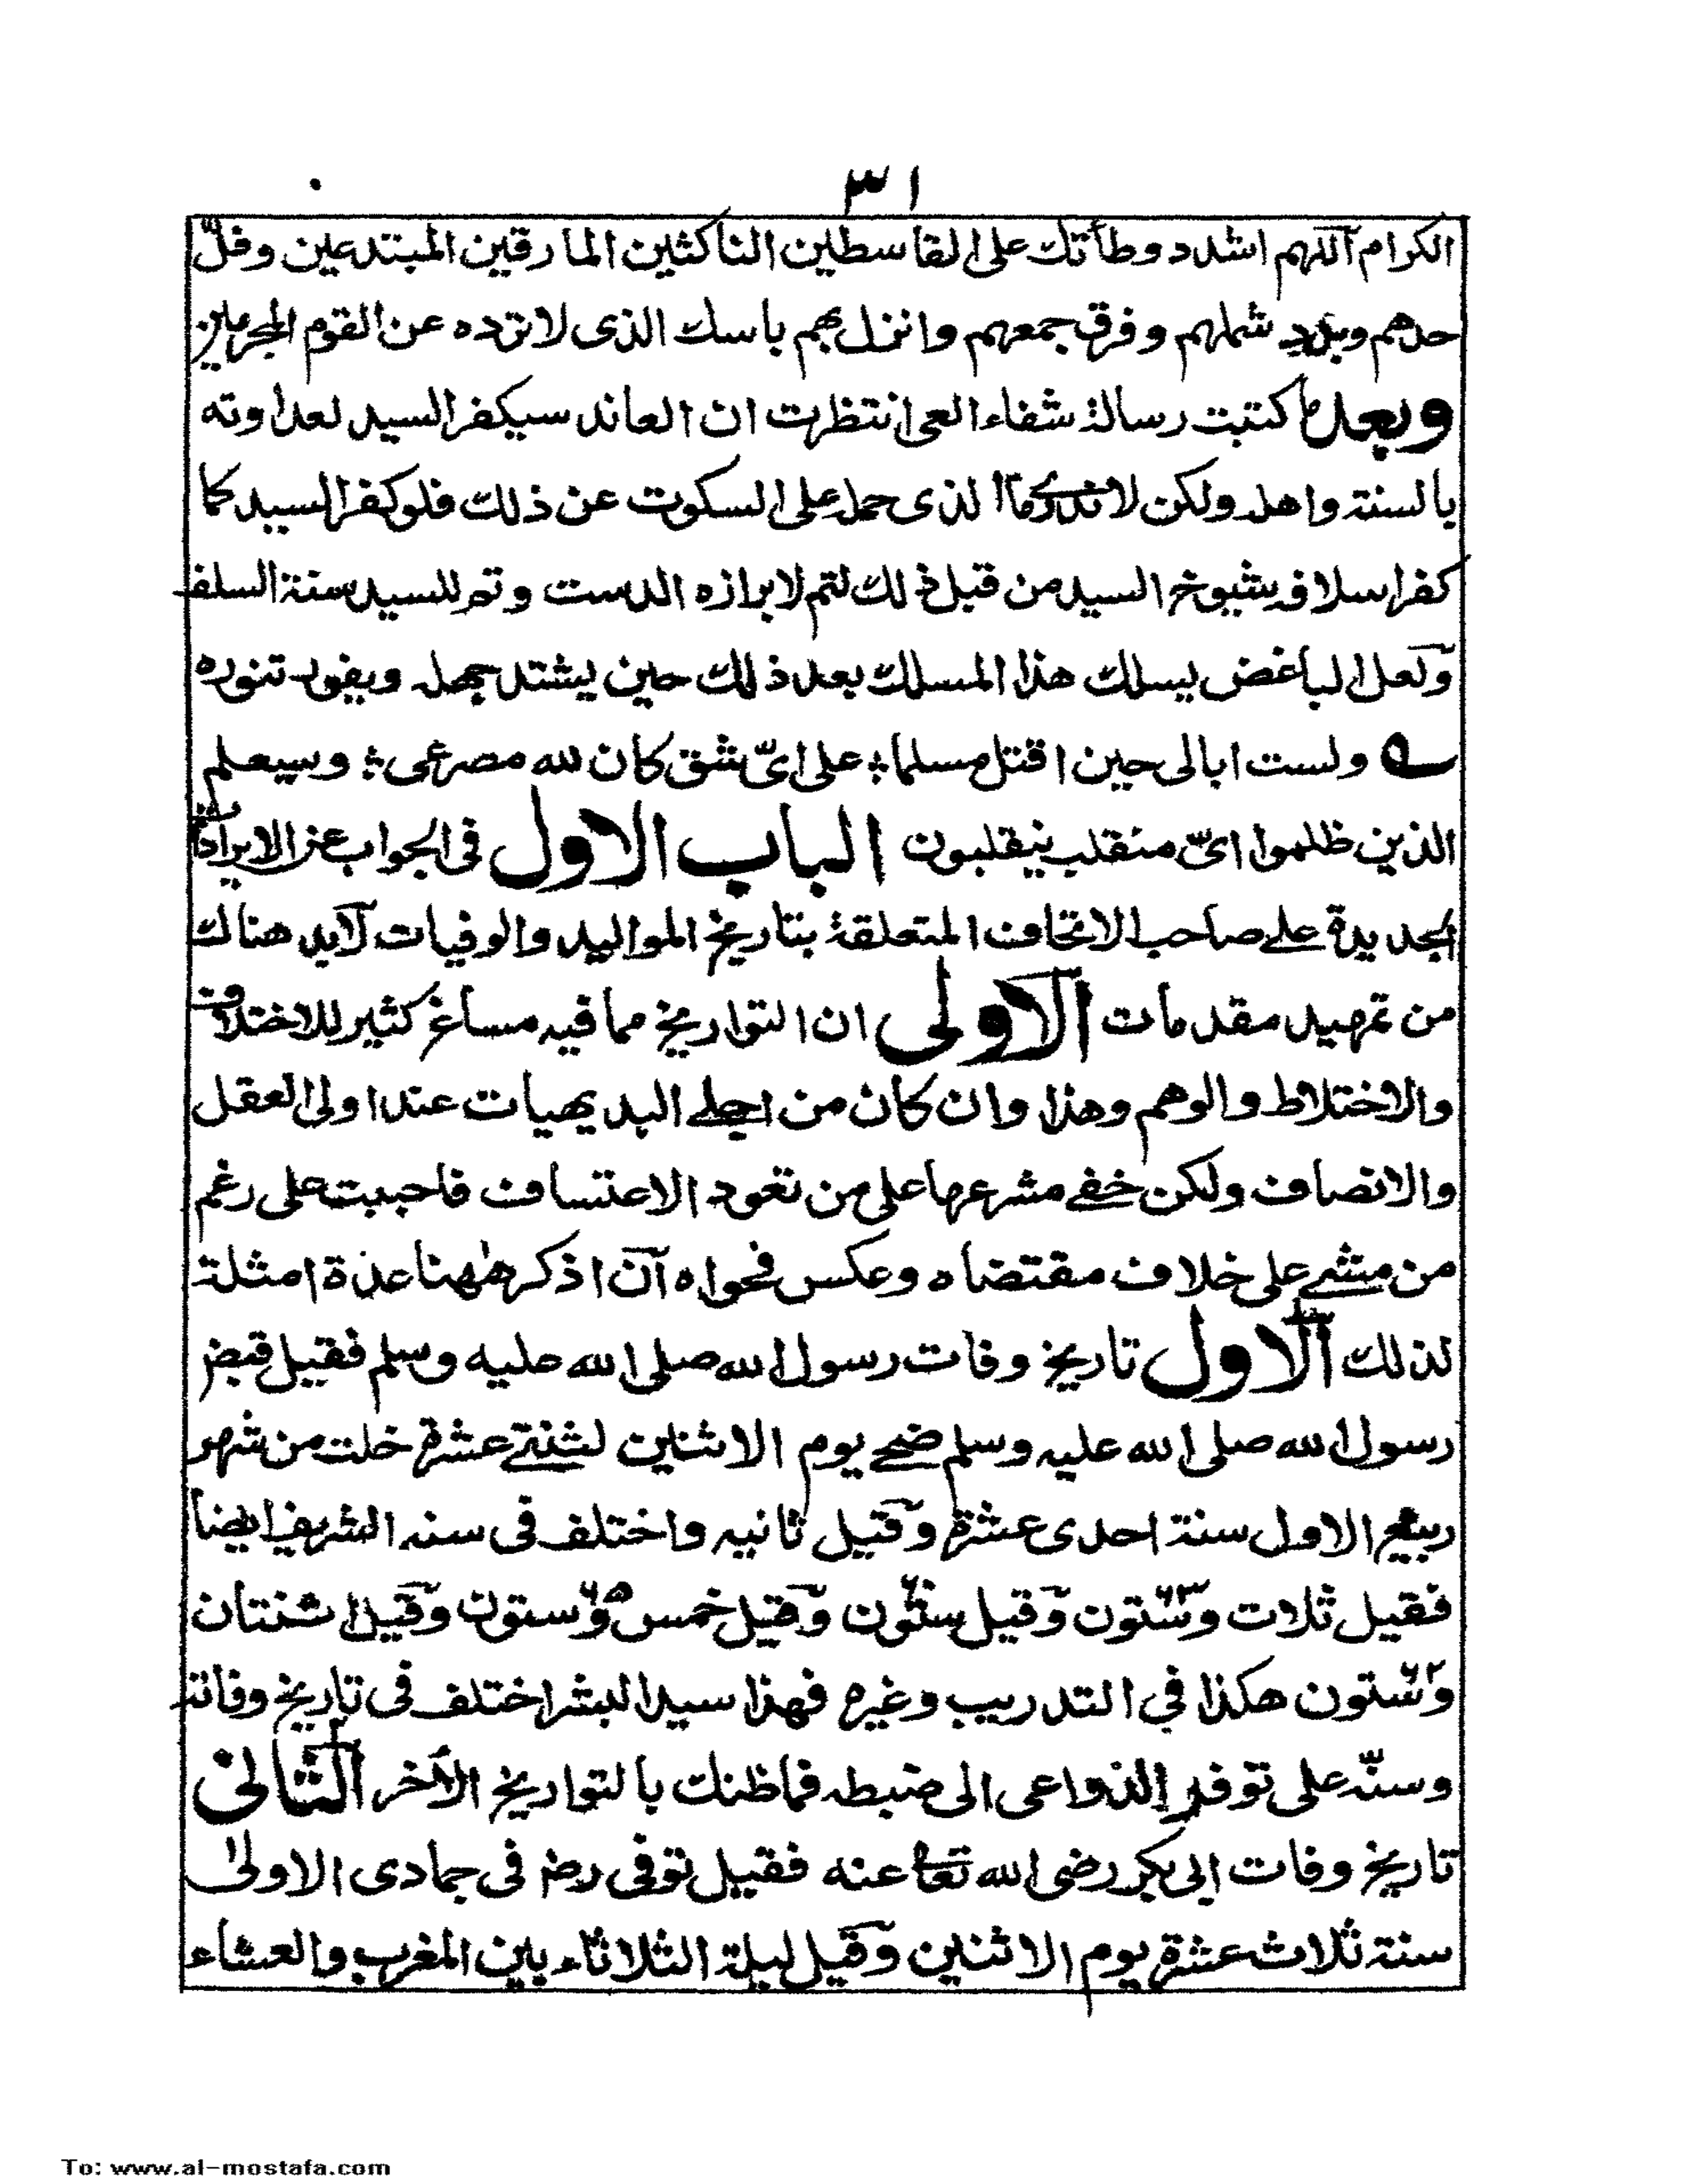 ٣١
الكرام اللهم اشدد وطأتك على القاسطين الناكثين المارقين المبتدعين وفلّ
حدهم وبدد شملهم وفرق جمعهم وانزل بهم باسك الذى لا ترده عن القوم المجرمين
وبعد كتبت رسالة شفاء العى انتظرت ان العاند سيكفر السيد لعداوته
بالسنة واهله ولكن لا ندرى ما الذى حمله على السكوت عن ذلك فلو كفر السيد كما
كفر اسلافه شيوخ السيد من قبل ذلك لتم لابرازه الدست وتم للسيد سنة السلف
ولعل الباغض يسلك هذا المسلك بعد ذلك حين يشتد جهله ويفور تنوره
ولست ابالى حين اقتل مسلما ؛ على اىّ شق كان لله مصرعى ؛ وسيعلم
الذين ظلموا اىّ منقلب ينقلبون الباب الاول فى الجواب عن الايرادات
الجديدة على صاحب الاتحاف المتعلقة بتاريخ المواليد والوفيات لابد هناك
من تمهيد مقدمات الاولى ان التواريخ مما فيه مساغ كثير للاختلاف
والاختلاط والوهم وهذا وان كان من اجلے البديهيات عند اولى العقل
والانصاف ولكن خفے مشرعها على من تعود الاعتساف فاحببت على رغم
من مشے على خلاف مقتضاه وعكس فحواه آن اذكر ههنا عدة امثلة
لذلك الاول تاريخ وفات رسول الله صلى الله عليه وسلم فقيل قبض
رسول الله صلى الله عليه وسلم ضحے يوم الاثنين لثنتے عشرة خلت من شهر
ربيع الاول سنة احدى عشرة وقيل ثانيه واختلف فى سنه الشريف ايضا
فقيل ثلاث وستون وقيل ستون وقيل خمس وستون وقيل اثنتان
وستون هكذا في التدريب وغيره فهذا سيد البشر اختلف فى تاريخ وفاته
وسنّه على توفر الدواعى الى ضبطه فما ظنك بالتواريخ الأخر الثانى
تاريخ وفات ابى بكر رضى الله تعالى عنه فقيل توفى رض فى جمادى الاولى
سنة ثلاث عشرة يوم الاثنين وقيل ليلة الثلاثاء بين المغرب والعشاء
To: www.al-mostafa.com